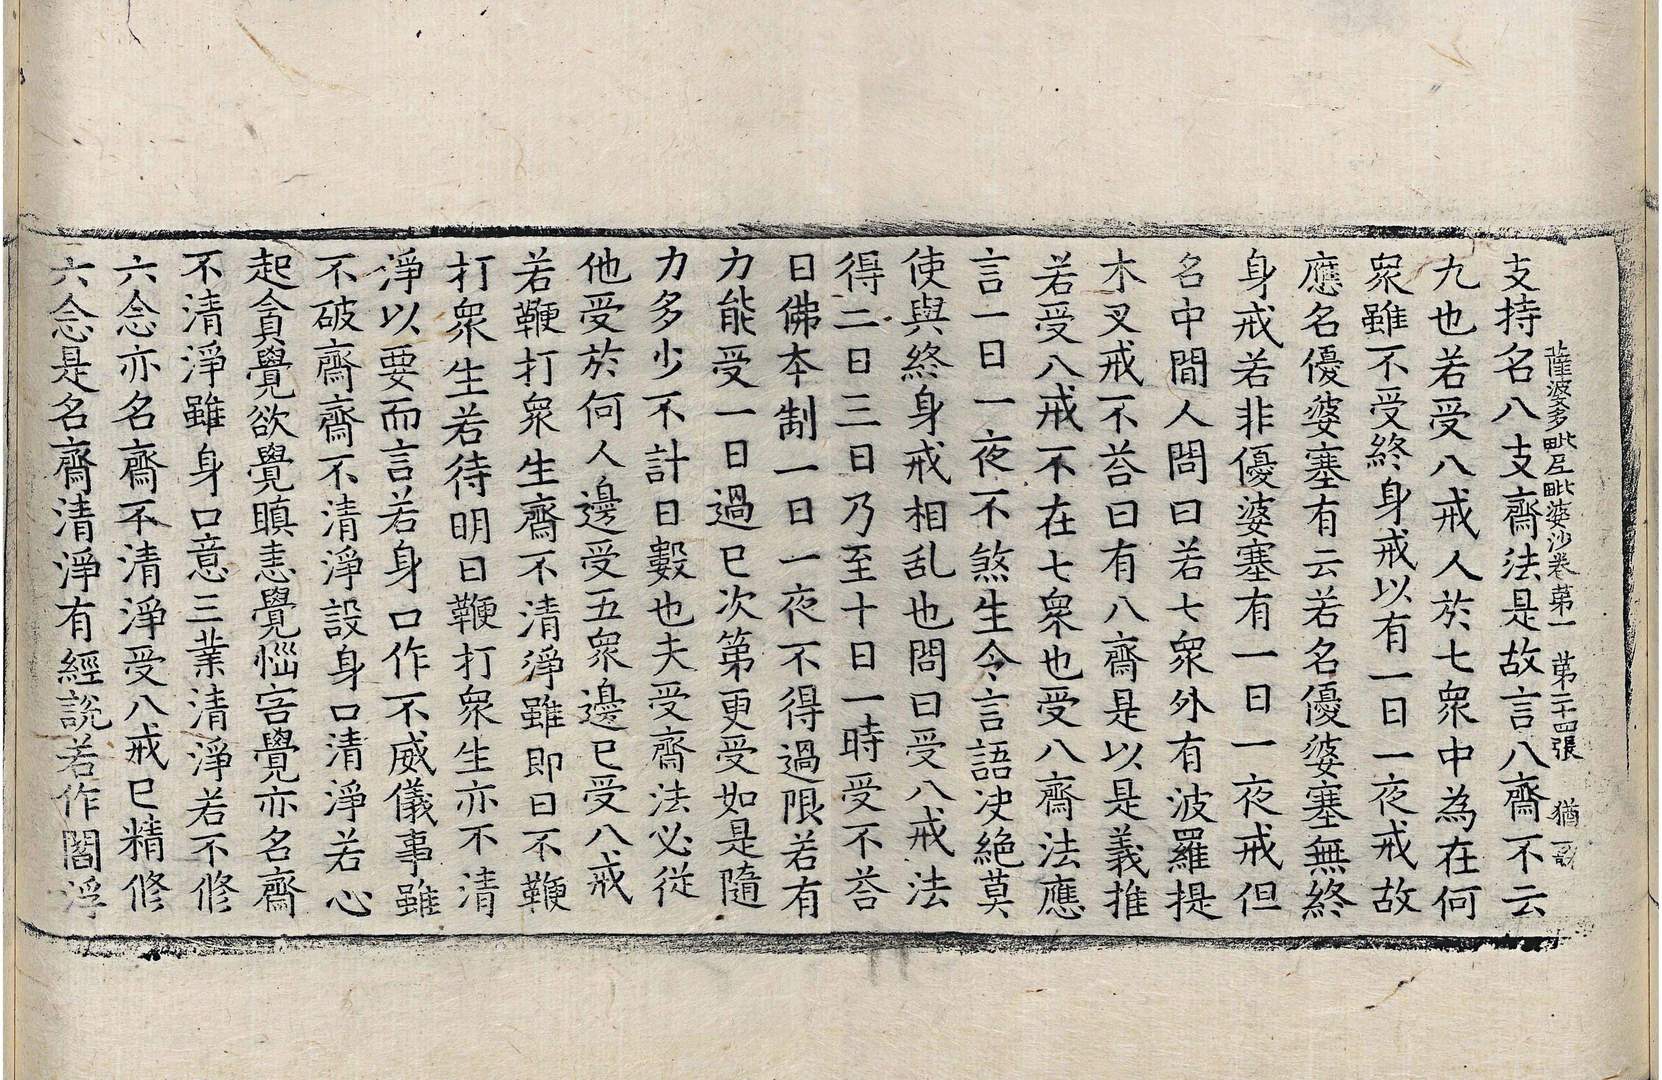 薩婆多毗尼毗婆沙卷第一 第二十四張 猶
支持名八支齋法是故言八齋不云
九也若受八戒人於七衆中為在何
衆雖不受終身戒以有一日一夜戒故
應名優婆塞有云若名優婆塞無終
身戒若非優婆塞有一日一夜戒但
名中間人問曰若七衆外有波羅提
木叉戒不荅曰有八齋是以是義推
若受八戒不在七衆也受八齋法應
言一日一夜不煞生令言語决絶莫
使與終身戒相乱也問曰受八戒法
得二日三日乃至十日一時受不荅
曰佛夲制一日一夜不得過限若有
力能受一日過已次第更受如是隨
力多少不計日數也夫受齋法必從
他受於何人邊受五衆邊已受八戒
若鞭打衆生齋不清淨雖即日不鞭
打衆生若待明日鞭打衆生亦不清
淨以要而言若身口作不威儀事雖
不破齋齋不清淨設身口清淨若心
起貪覺欲覺瞋恚覺惱害覺亦名齋
不清淨雖身口意三業清淨若不修
六念亦名齋不清淨受八戒已精修
六念是名齋清淨有經說若作閻浮